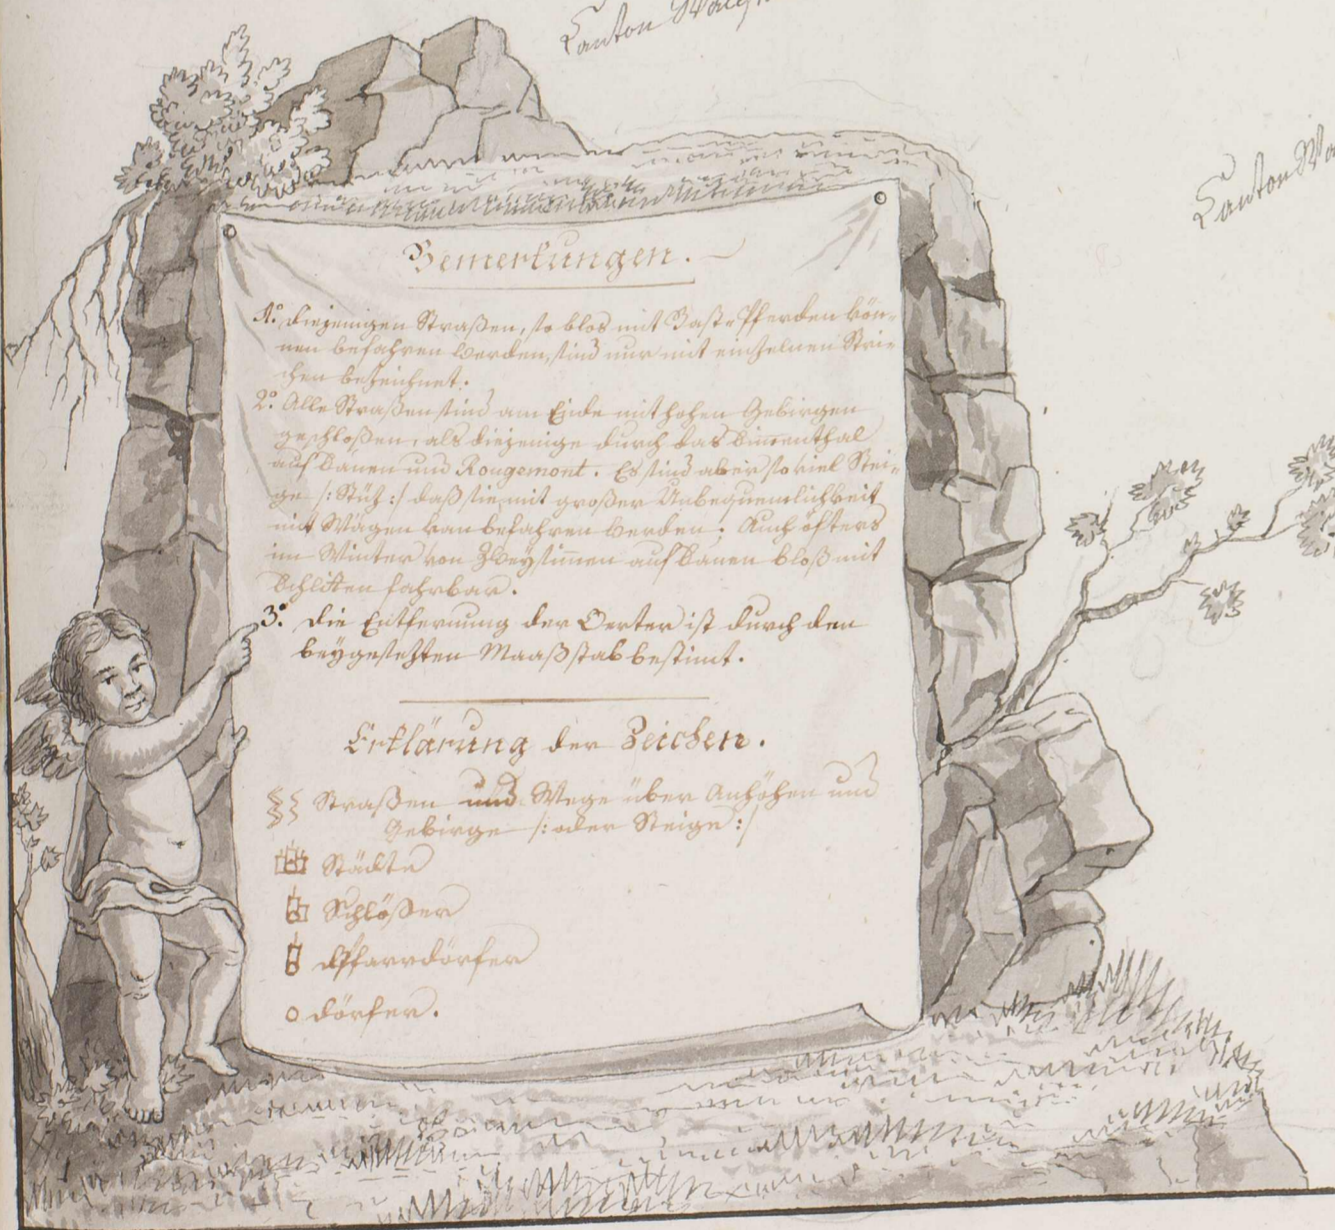 Canton
Canton
Bemerkungen.
1.° Diejenigen Straßen, so blos mit Bast-Pferden kön-
nen befahren werden, sind nur mit einzelnen Stri-
chen bezeichnet.
2.° Alle Straßen sind am Ende mit hohen Gebirgen
geschloßen, als diejenige durch das Simenthal
auf Sanen und Rougemont. Es sind aber so viel Stei-
ge /: Stütz :/ daß sie mit großer Unbequemlichkeit
mit Wägen kan befahren werden; Auch öfters
im Winter von Zweysimmen auf Sanen bloß mit
Schlitten fahrbar.
3.° Die Entfernung der Oerter ist durch den
beygesetzten Maaßstab bestimt.
Erklärung der Zeichen.
Straßen und Wege über Anhöhen und
Gebirge /: oder Steige :/
Städte
Schlößer
Pfarrdörfer
Dörfer.